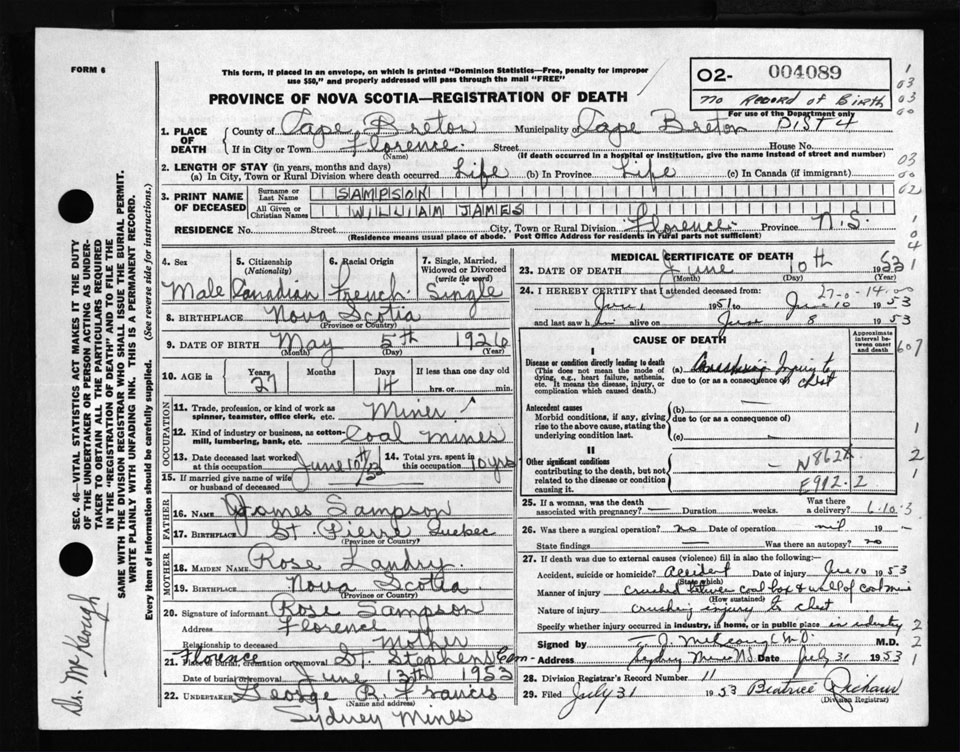 FORM 6
This form, if placed in an envelope, on which is printed "Dominion Statistics—Free, penalty for improper
use $50," and properly addressed will pass through the mail "FREE"
02- 004089
No Record of Birth
For use of the Department only
Dist 4
PROVINCE OF NOVA SCOTIA—REGISTRATION OF DEATH
1. PLACE OF DEATH
County of Cape Breton Municipality Cape Breton
If in City or Town Florence Street House No.
(Name) (If death occurred in a hospital or institution, give the name instead of street and number)
2. LENGTH OF STAY (in years, months and days)
(a) In City, Town or Rural Division where death occurred Life (b) In Province Life (c) In Canada (if immigrant)
3. PRINT NAME OF DECEASED
Surname or Last Name SAMPSON
All Given or Christian Names WILLIAM JAMES
RESIDENCE No. Street City, Town or Rural Division Florence Province N.S.
(Residence means usual place of abode. Post Office Address for residents in rural parts not sufficient)
4. Sex 5. Citizenship (Nationality) 6. Racial Origin 7. Single, Married, Widowed or Divorced (write the word)
Male Canadian French Single
8. BIRTHPLACE Nova Scotia
(Province or Country)
9. DATE OF BIRTH May 5th 1926
(Month) (Day) (Year)
10. AGE in Years Months Days If less than one day old
27 14 hrs. or min.
OCCUPATION
11. Trade, profession, or kind of work as spinner, teamster, office clerk, etc. Miner
12. Kind of industry or business, as cotton-mill, lumbering, bank, etc. Coal Mines
13. Date deceased last worked at this occupation June 10th/53 14. Total yrs. spent in this occupation 10 yrs
15. If married give name of wife or husband of deceased
FATHER
16. NAME James Sampson
17. BIRTHPLACE St. Pierre Quebec
(Province or Country)
MOTHER
18. MAIDEN NAME Rose Landry
19. BIRTHPLACE Nova Scotia
(Province or Country)
20. Signature of informant Rose Sampson
Address Florence
Relationship to deceased Mother
21. Place of burial, cremation or removal Florence St. Stephens Cem-
Date of burial or removal June 13th 1953
22. UNDERTAKER George R. Francis
(Name and address)
Sydney Mines
MEDICAL CERTIFICATE OF DEATH
23. DATE OF DEATH June 10th 1953
(Month) (Day) (Year)
27-0-14-00
24. I HEREBY CERTIFY that I attended deceased from
1951 to June 10 1953
and last saw him alive on June 8 1953
CAUSE OF DEATH
Approximate interval between onset and death
607
I
Disease or condition directly leading to death
(This does not mean the mode of dying, e.g., heart failure, asthenia, etc. It means the disease, injury, or complication which caused death.)
(a) Crushing Injury to chest
due to (or as a consequence of)
Antecedent causes
Morbid conditions, if any, giving rise to the above cause, stating the underlying condition last.
(b) —
due to (or as a consequence of)
(c) —
II
Other significant conditions
contributing to the death, but not related to the disease or condition causing it.
N862X
E912-2
25. If a woman, was the death associated with pregnancy? — Duration weeks. Was there a delivery?
6-10-3
26. Was there a surgical operation? no Date of operation nil 19 -
State findings — Was there an autopsy? no
27. If death was due to external causes (violence) fill in also the following:
Accident, suicide or homicide? Accident Date of injury June 10 1953
(State which)
Manner of injury crushed between coal box & wall of coal mine
(How sustained)
Nature of injury crushing injury to chest
Specify whether injury occurred in industry, in home, or in public place in industry
Signed by T. J. McKeough M.D. M.D.
Address Sydney Mines N.S. Date July 31 1953
28. Division Registrar's Record Number 11
29. Filed July 31 1953 Beatrice
(Division Registrar)
SEC. 46—VITAL STATISTICS ACT MAKES IT THE DUTY
OF THE UNDERTAKER OR PERSON ACTING AS UNDER-
TAKER TO OBTAIN ALL THE PARTICULARS REQUIRED
IN THE "REGISTRATION OF DEATH" AND TO FILE THE
SAME WITH THE DIVISION REGISTRAR WHO SHALL ISSUE THE BURIAL PERMIT.
WRITE PLAINLY WITH UNFADING INK. THIS IS A PERMANENT RECORD.
Every item of information should be carefully supplied. (See reverse side for instructions.)
Dr. McKeough